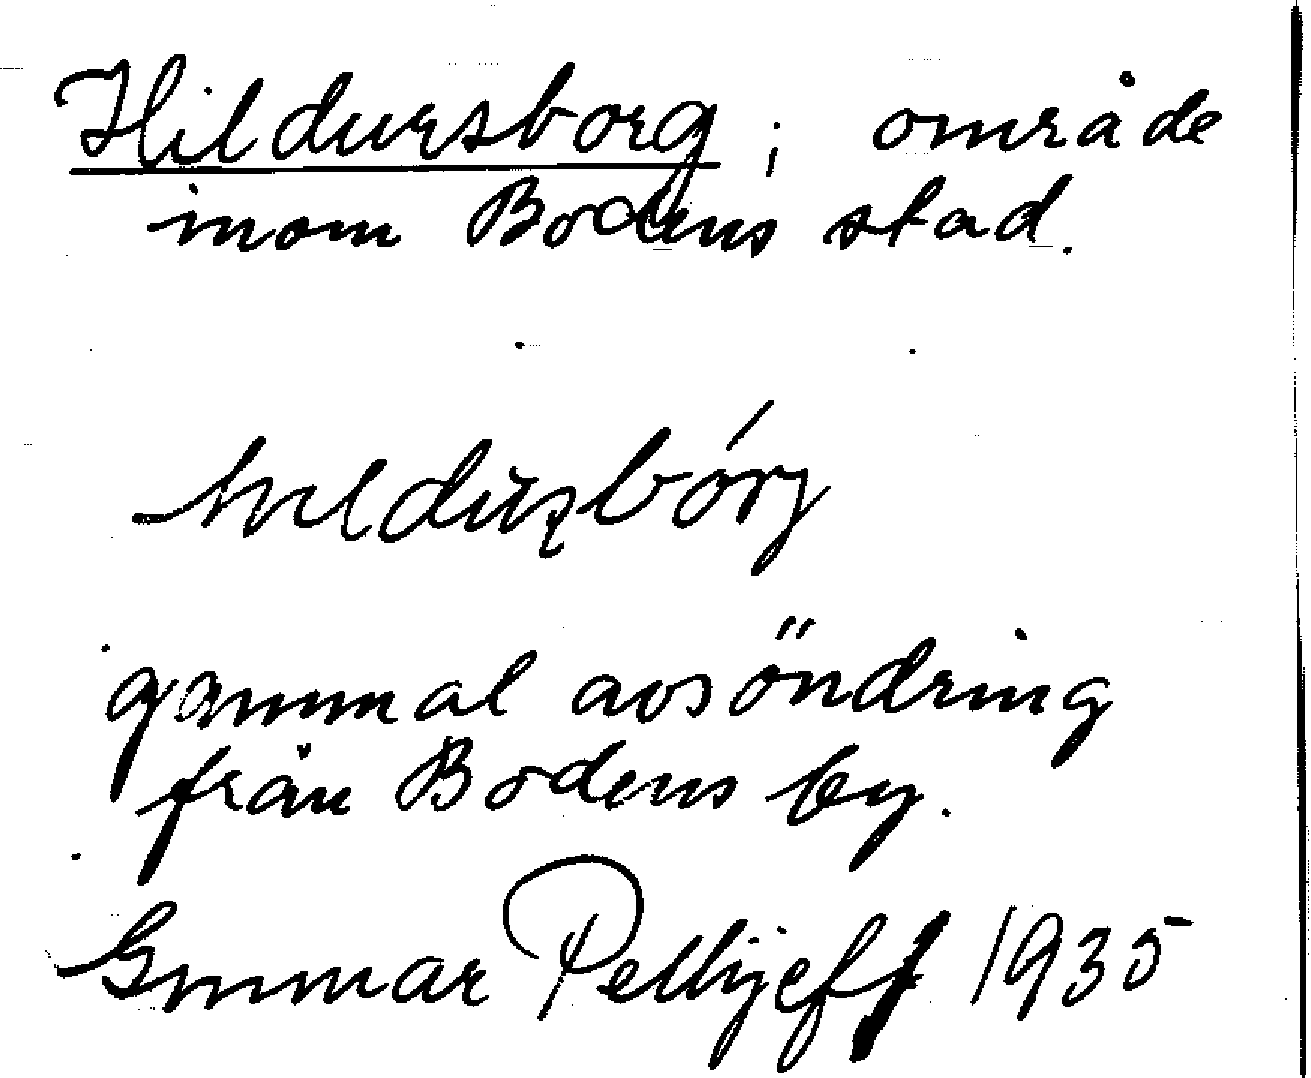 Hildursborg; område
inom Bodens stad.
hıldu̇ʂbórg
gammal avsöndring
från Bodens by.
Gunnar Pellijeff 1935